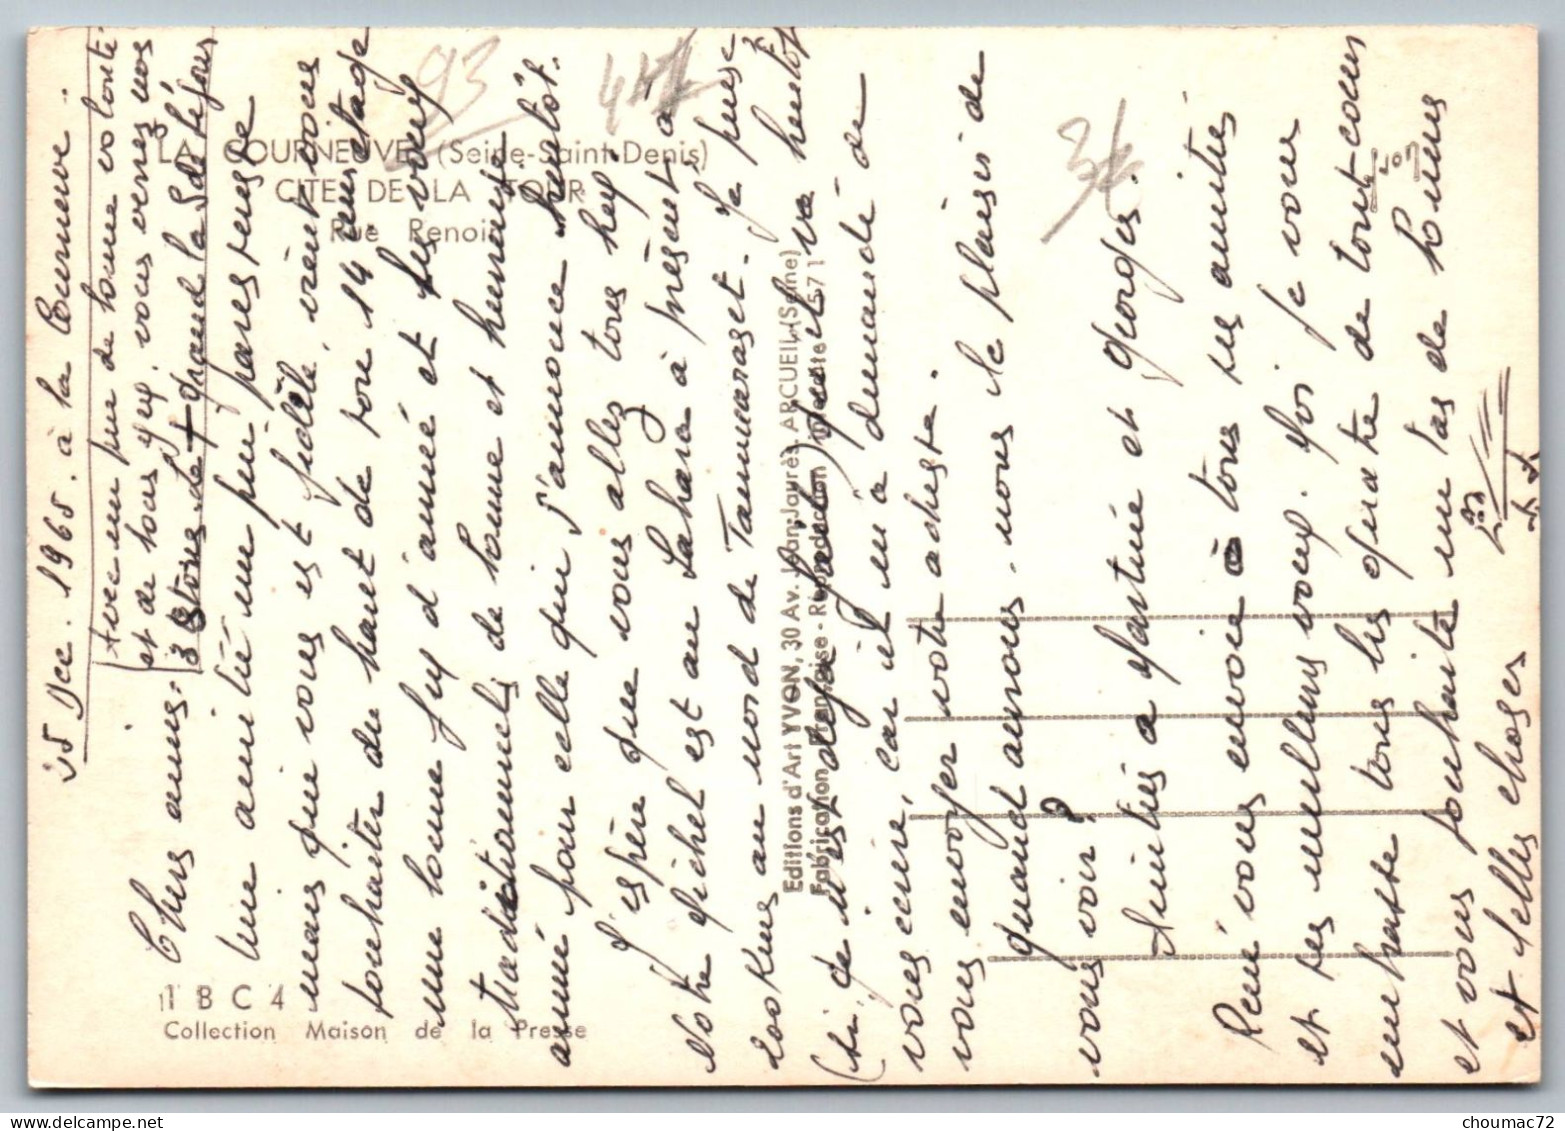 LA COURNEUVE (Seine-Saint-Denis)
CITE DE LA TOUR
Rue Renoir
93
3€
1 B C 4
Collection Maison de la Presse
Editions d'Art YVON, 30 Av. Jean-Jaurès ARCUEIL (Seine)
Fabrication Française - Reproduction interdite 571
25 Dec. 1968. à la Courneuve.
Avec un peu de bonne volonté
et de bons yeux vous verrez nos
3 stores. le + grand la S. de séjour
Chers amis.
Une amitié un peu paresseuse
mais qui vous est fidèle vient vous
souhaiter du haut de son 14 eme étage
une bonne fin d'année et ses voeux
traditionnels de bonne et heureuse
année pour celle qui s'annonce bientôt.
J'espère que vous allez tous bien.
Notre Michel est au Sahara à présent à
200 Kms au nord de Tamanrasset. Je pense
qu'il va bientôt
vous écrire, car il m'a demandé de
vous envoyer votre adresse.
Quand aurons-nous le plaisir de
vous voir?
Amitiés à Martine et Georges.
René vous envoie à tous ses amitiés
et ses meilleurs voeux. Moi je vous
embrasse tous les quatre de tout coeur
et vous souhaite un tas de bonnes
et belles choses
choumac72